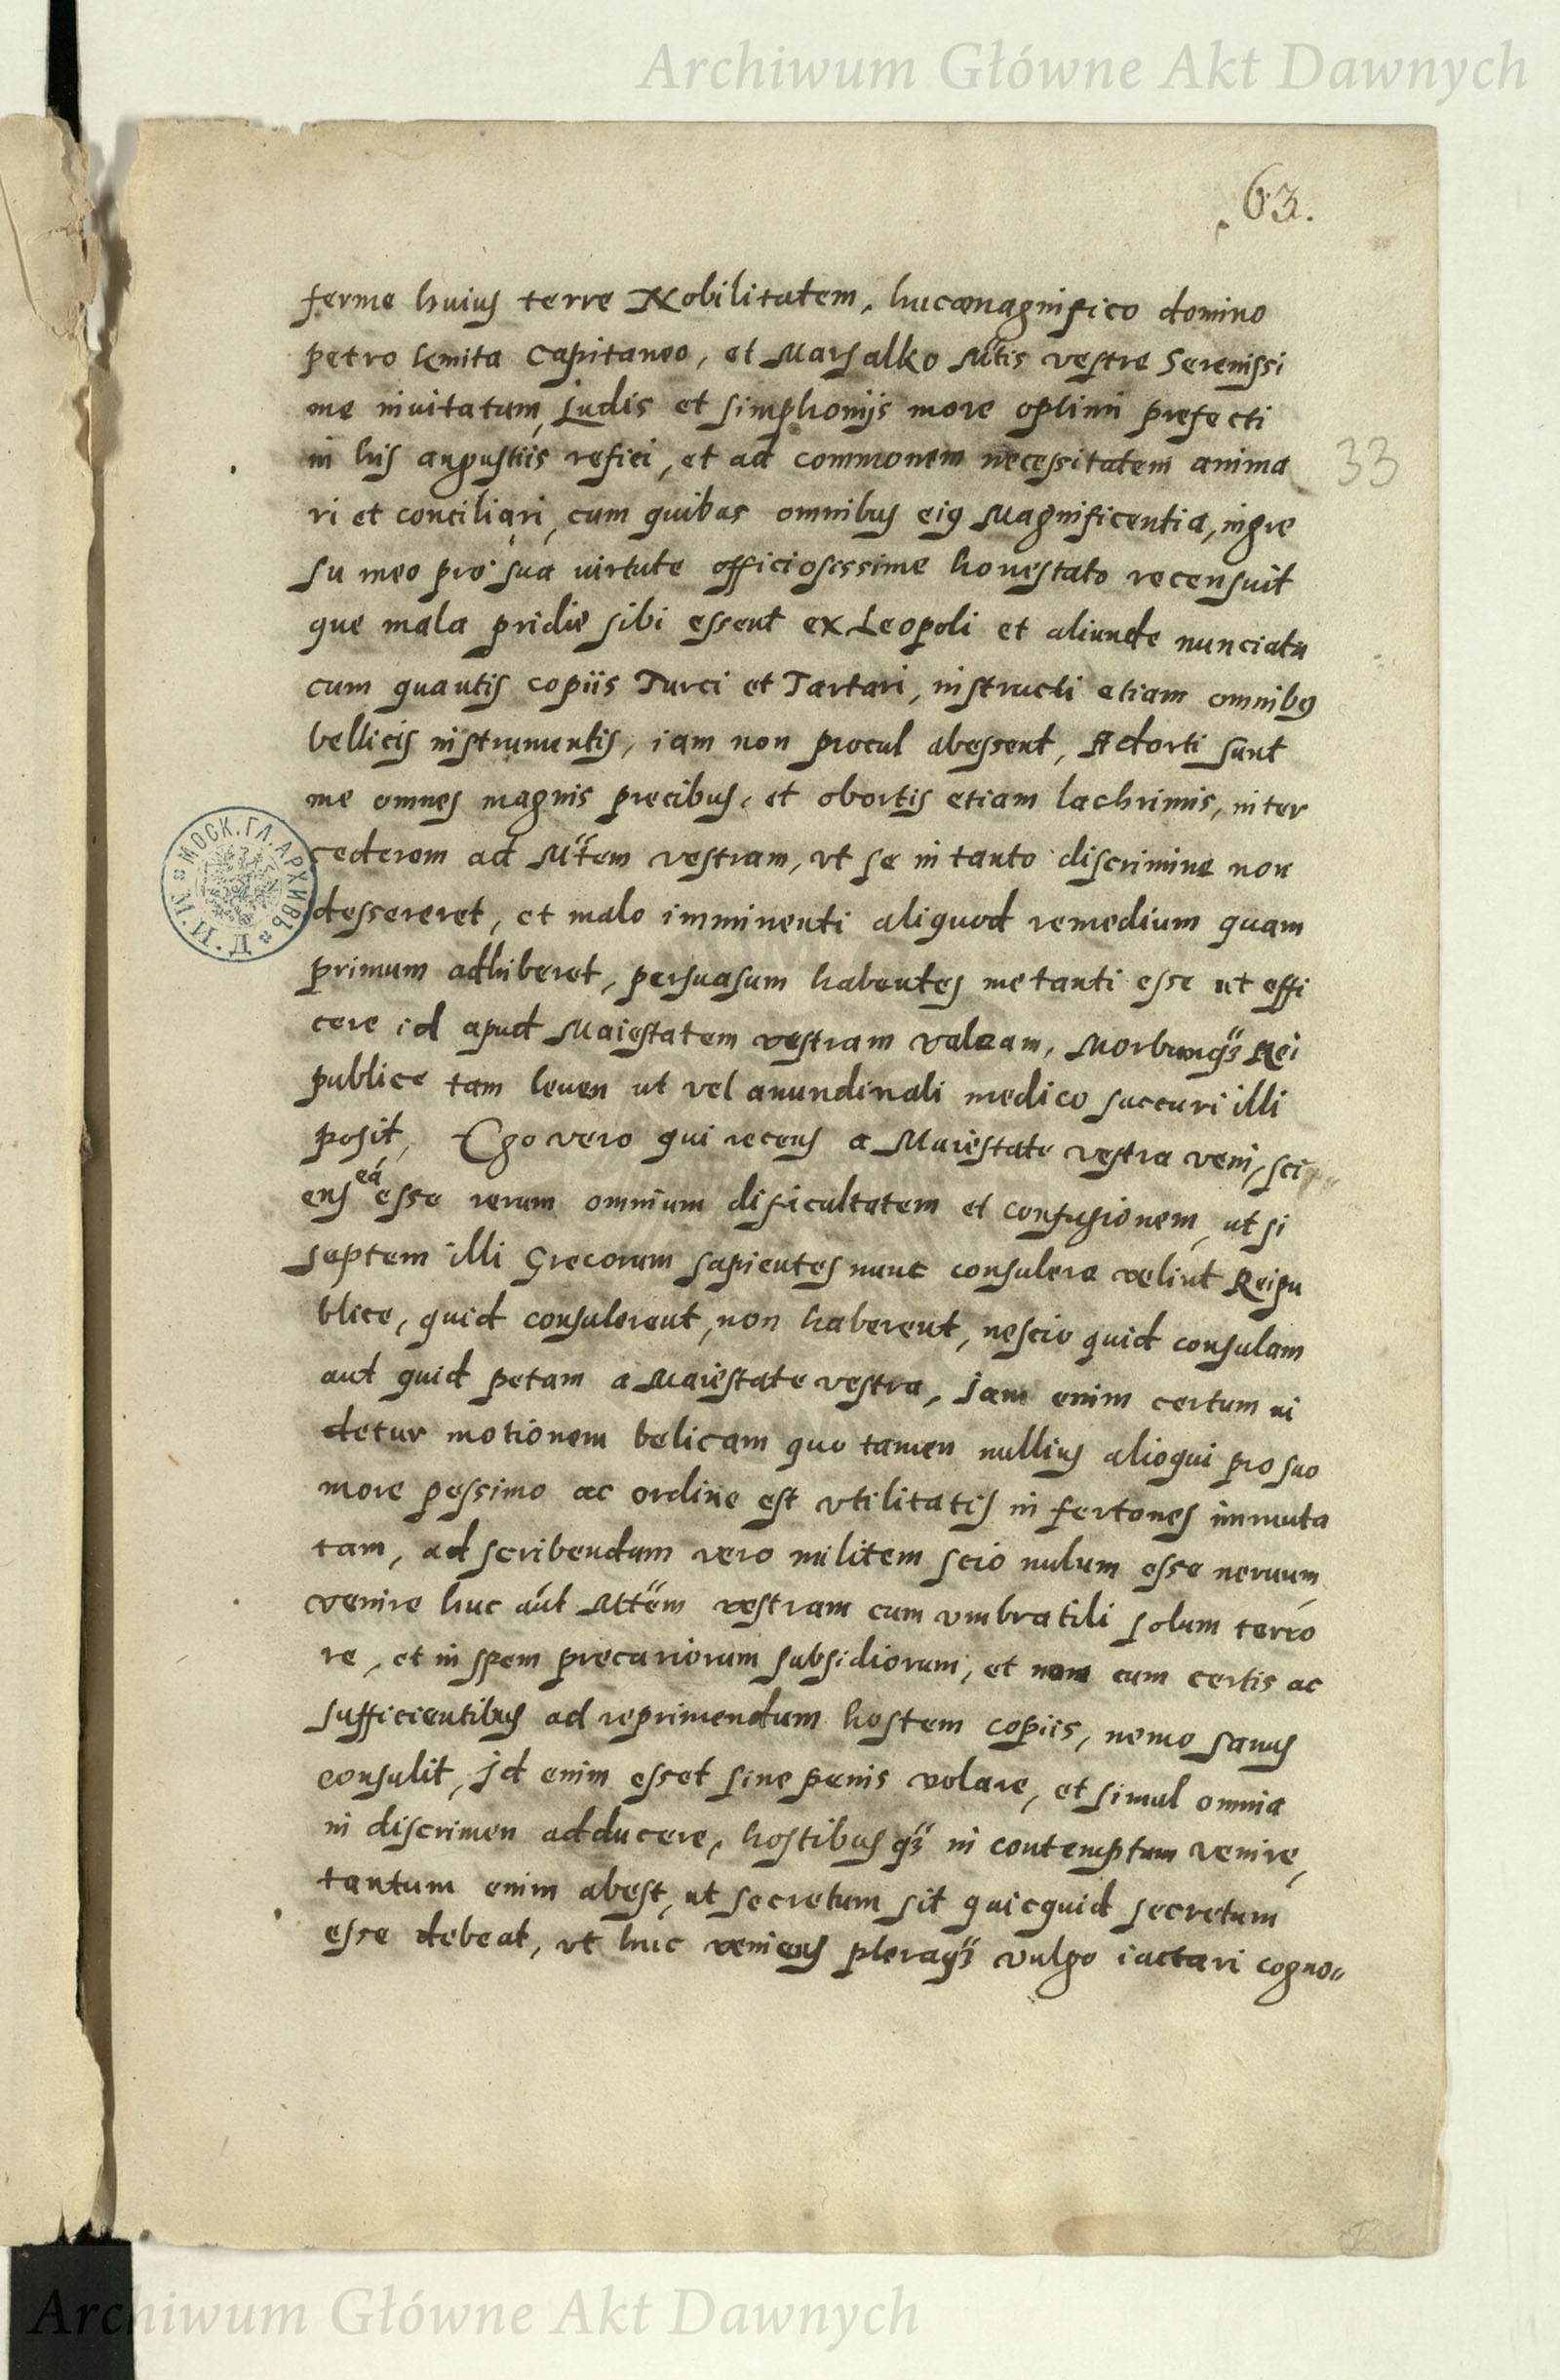 Archiwum Główne Akt Dawnych
63.
ferme huius terre Nobilitatem, huc a magnifico domino
petro kmita Capitaneo, et Marsalko Mtis vestre Serenissi
me inuitatum, Ludis et simphoniis more optimi prefecti
in his angustiis refici, et ad commonem necessitatem anima
33
ri et conciliari, cum quibus omnibus eius Magnificentia, ingre
su meo pro sua uirtute officiosissime honestato recensuit
que mala pridie sibi essent ex Leopoli et aliunde nunciata
cum quantis copiis Turci et Tartari, instructi etiam omnibus
bellicis instrumentis, iam non procul abessent, Adorti sunt
me omnes magnis precibus, et obortis etiam lachrimis, inter
cederem ad Mtem vestram, vt se in tanto discrimine non
dessereret, et malo imminenti aliquod remedium quam
primum adhiberet, persuasum habentes me tanti esse ut effi
cere id apud Maiestatem vestram valeam, Morbumq3 Rei
publice tam leuen ut vel anundinali medico succuri illi
posit, Ego vero qui recens a Maiestate vestra veni, sci
ens eā esse rerum omnium dificultatem et confusionem, ut si
septem illi Grecorum sapientes nunc consulere velint Reipu
blice, quid consulerent, non haberent, nescio quid consulam
aut quid petam a Maiestate vestra, Jam enim certum ui
detur motionem belicam que tamen nullius alioqui pro suo
more pessimo ac ordine est vtilitatis in fertones immuta
tam, ad scribendum vero militem scio nulum esse neruum,
venire huc aut Mtem vestram cum vmbratili solum terro
re, et in spem precariorum subsidiorum, et non cum certis ac
sufficientibus ad reprimendum hostem copiis, nemo sanus
consulit, Jd enim esset sine penis volare, et simul omnia
in discrimen adducere, hostibusq3 in contemptum venire,
tantum enim abest, ut secretum sit quicquid secretum
esse debeat, vt huc veniens pleraq3 vulgo iactari cogno=
МОСК. ГЛ. АРХИВЪ М. И. Д.
Archiwum Główne Akt Dawnych